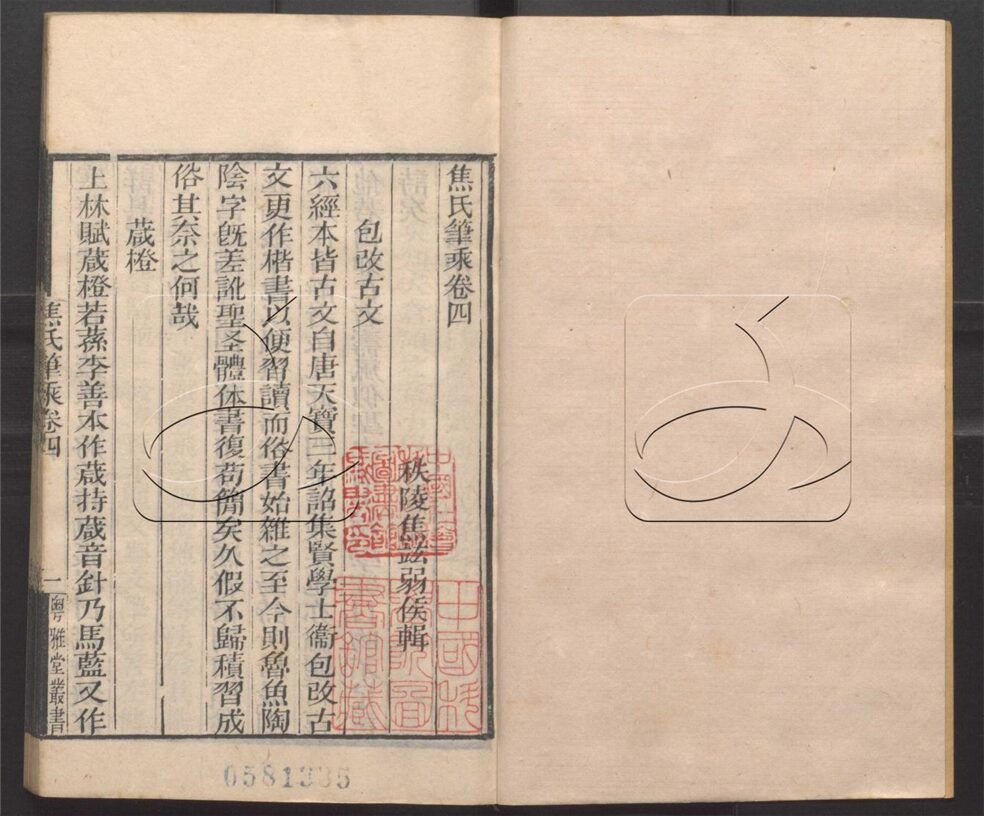 焦氏筆乘卷四
秣陵焦竑弱侯輯
包改古文
六經本皆古文自唐天寶三年詔集賢學士衞包改古
文更作楷書以便習讀而俗書始雜之至今則魯魚陶
陰字旣差訛聖圣體体書復苟簡矣久假不歸積習成
俗其奈之何哉
葴橙
上林賦葴橙若蓀李善本作葴持葴音針乃馬藍又作
焦氏筆乘卷四
一
粵雅堂叢書
0581335